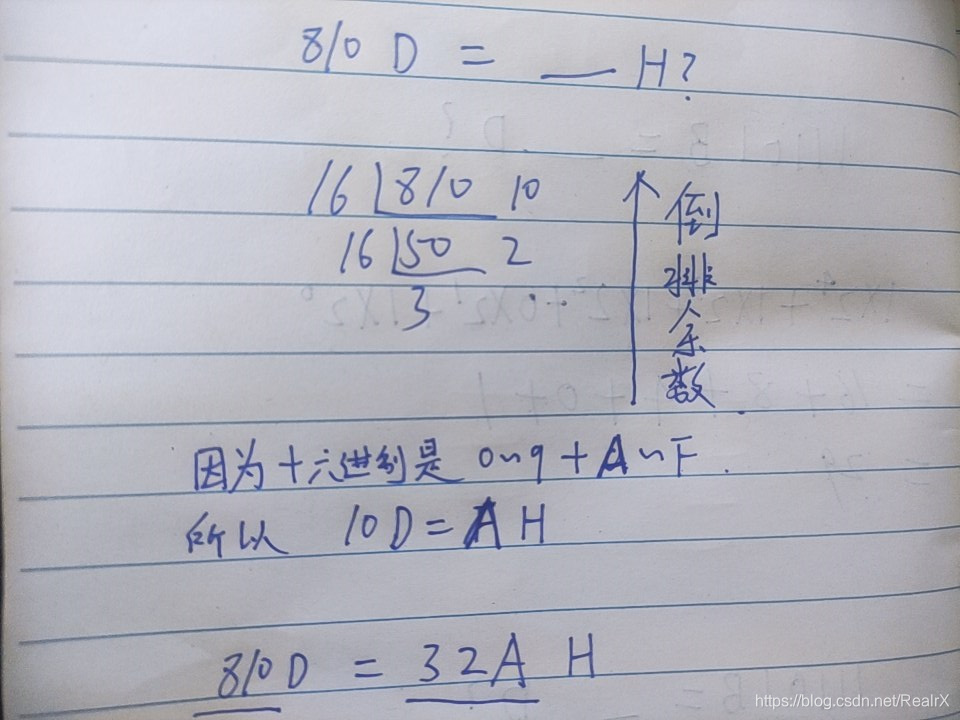 810 D = __ H?
16 810 10
16 50 2
3
倒排余数
因为十六进制是 0~9 + A~F.
所以 10D = A H
810D = 32A H
https://blog.csdn.net/RealrX